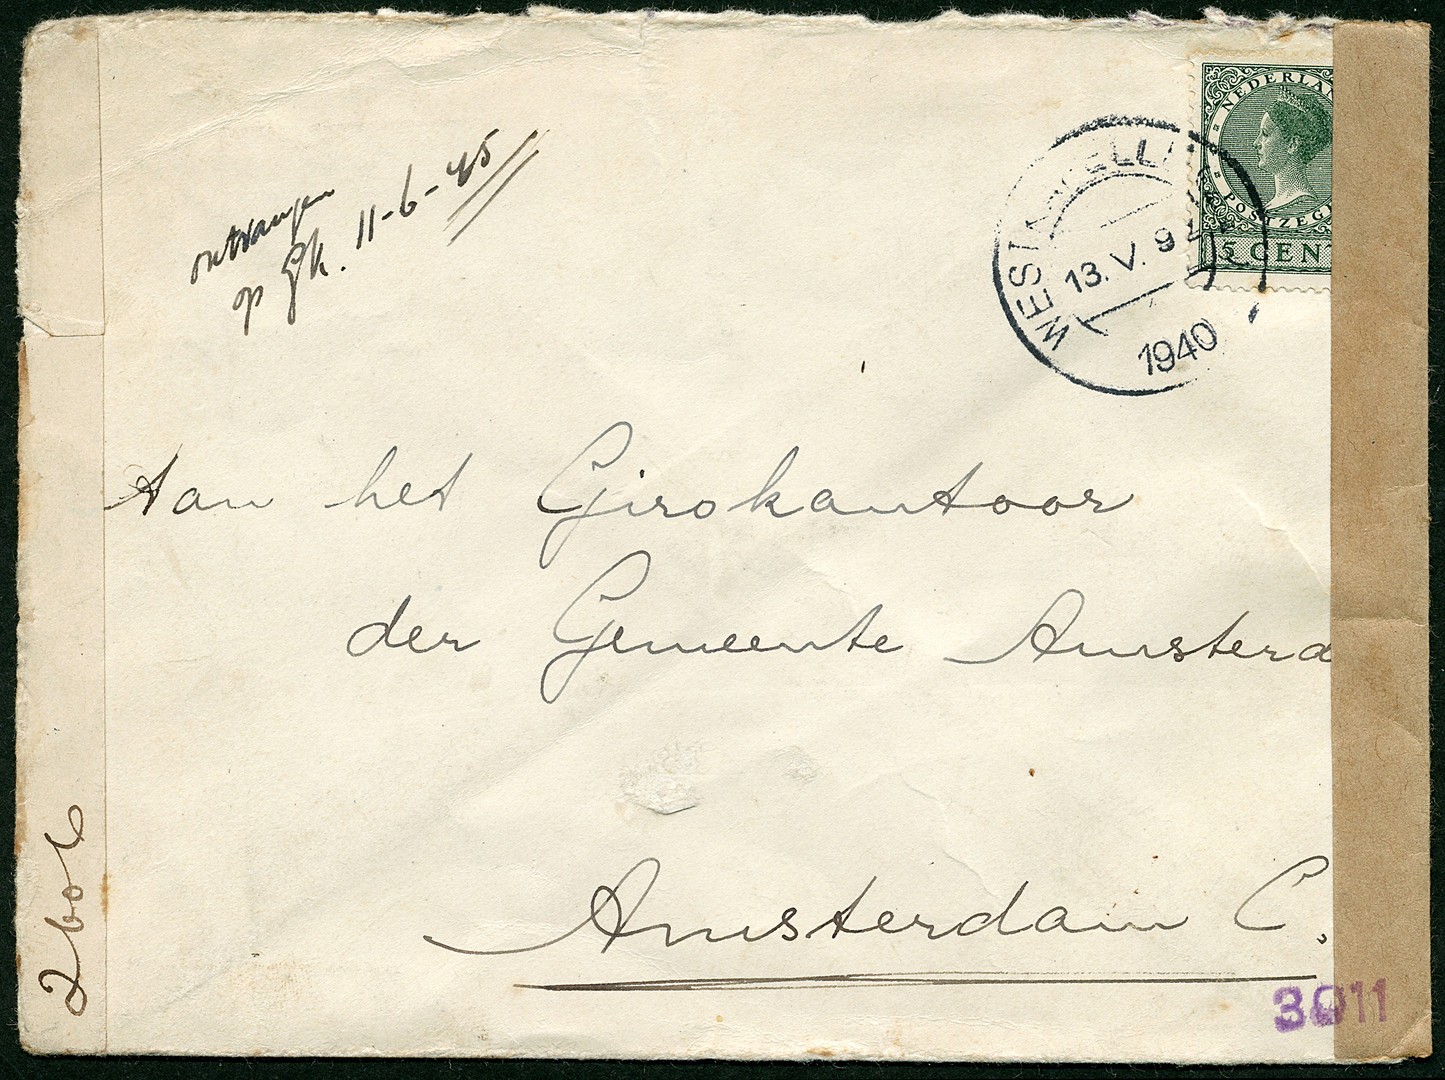 ontvangen
op Gk. 11-6-45
NEDERLAN
POSTZEGE
5 CENT
WEST-TERSCHELLING
13. V. 9
1940
Aan het Girokantoor
der Gemeente Amsterd
Amsterdam C.
3011